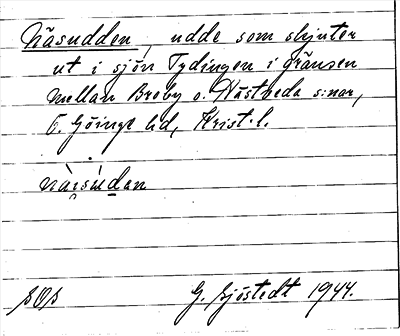 Näsudden, udde som skjuter
ut i sjön Tydingen i gränsen
mellan Broby o. Hästveda s:nar,
Ö. Göinge hd, Krist. l.
G. Sjöstedt 1944.